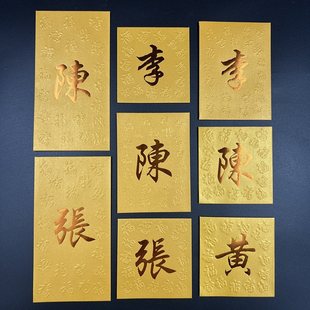 陳
李
李
陳
陳
張
張
黃